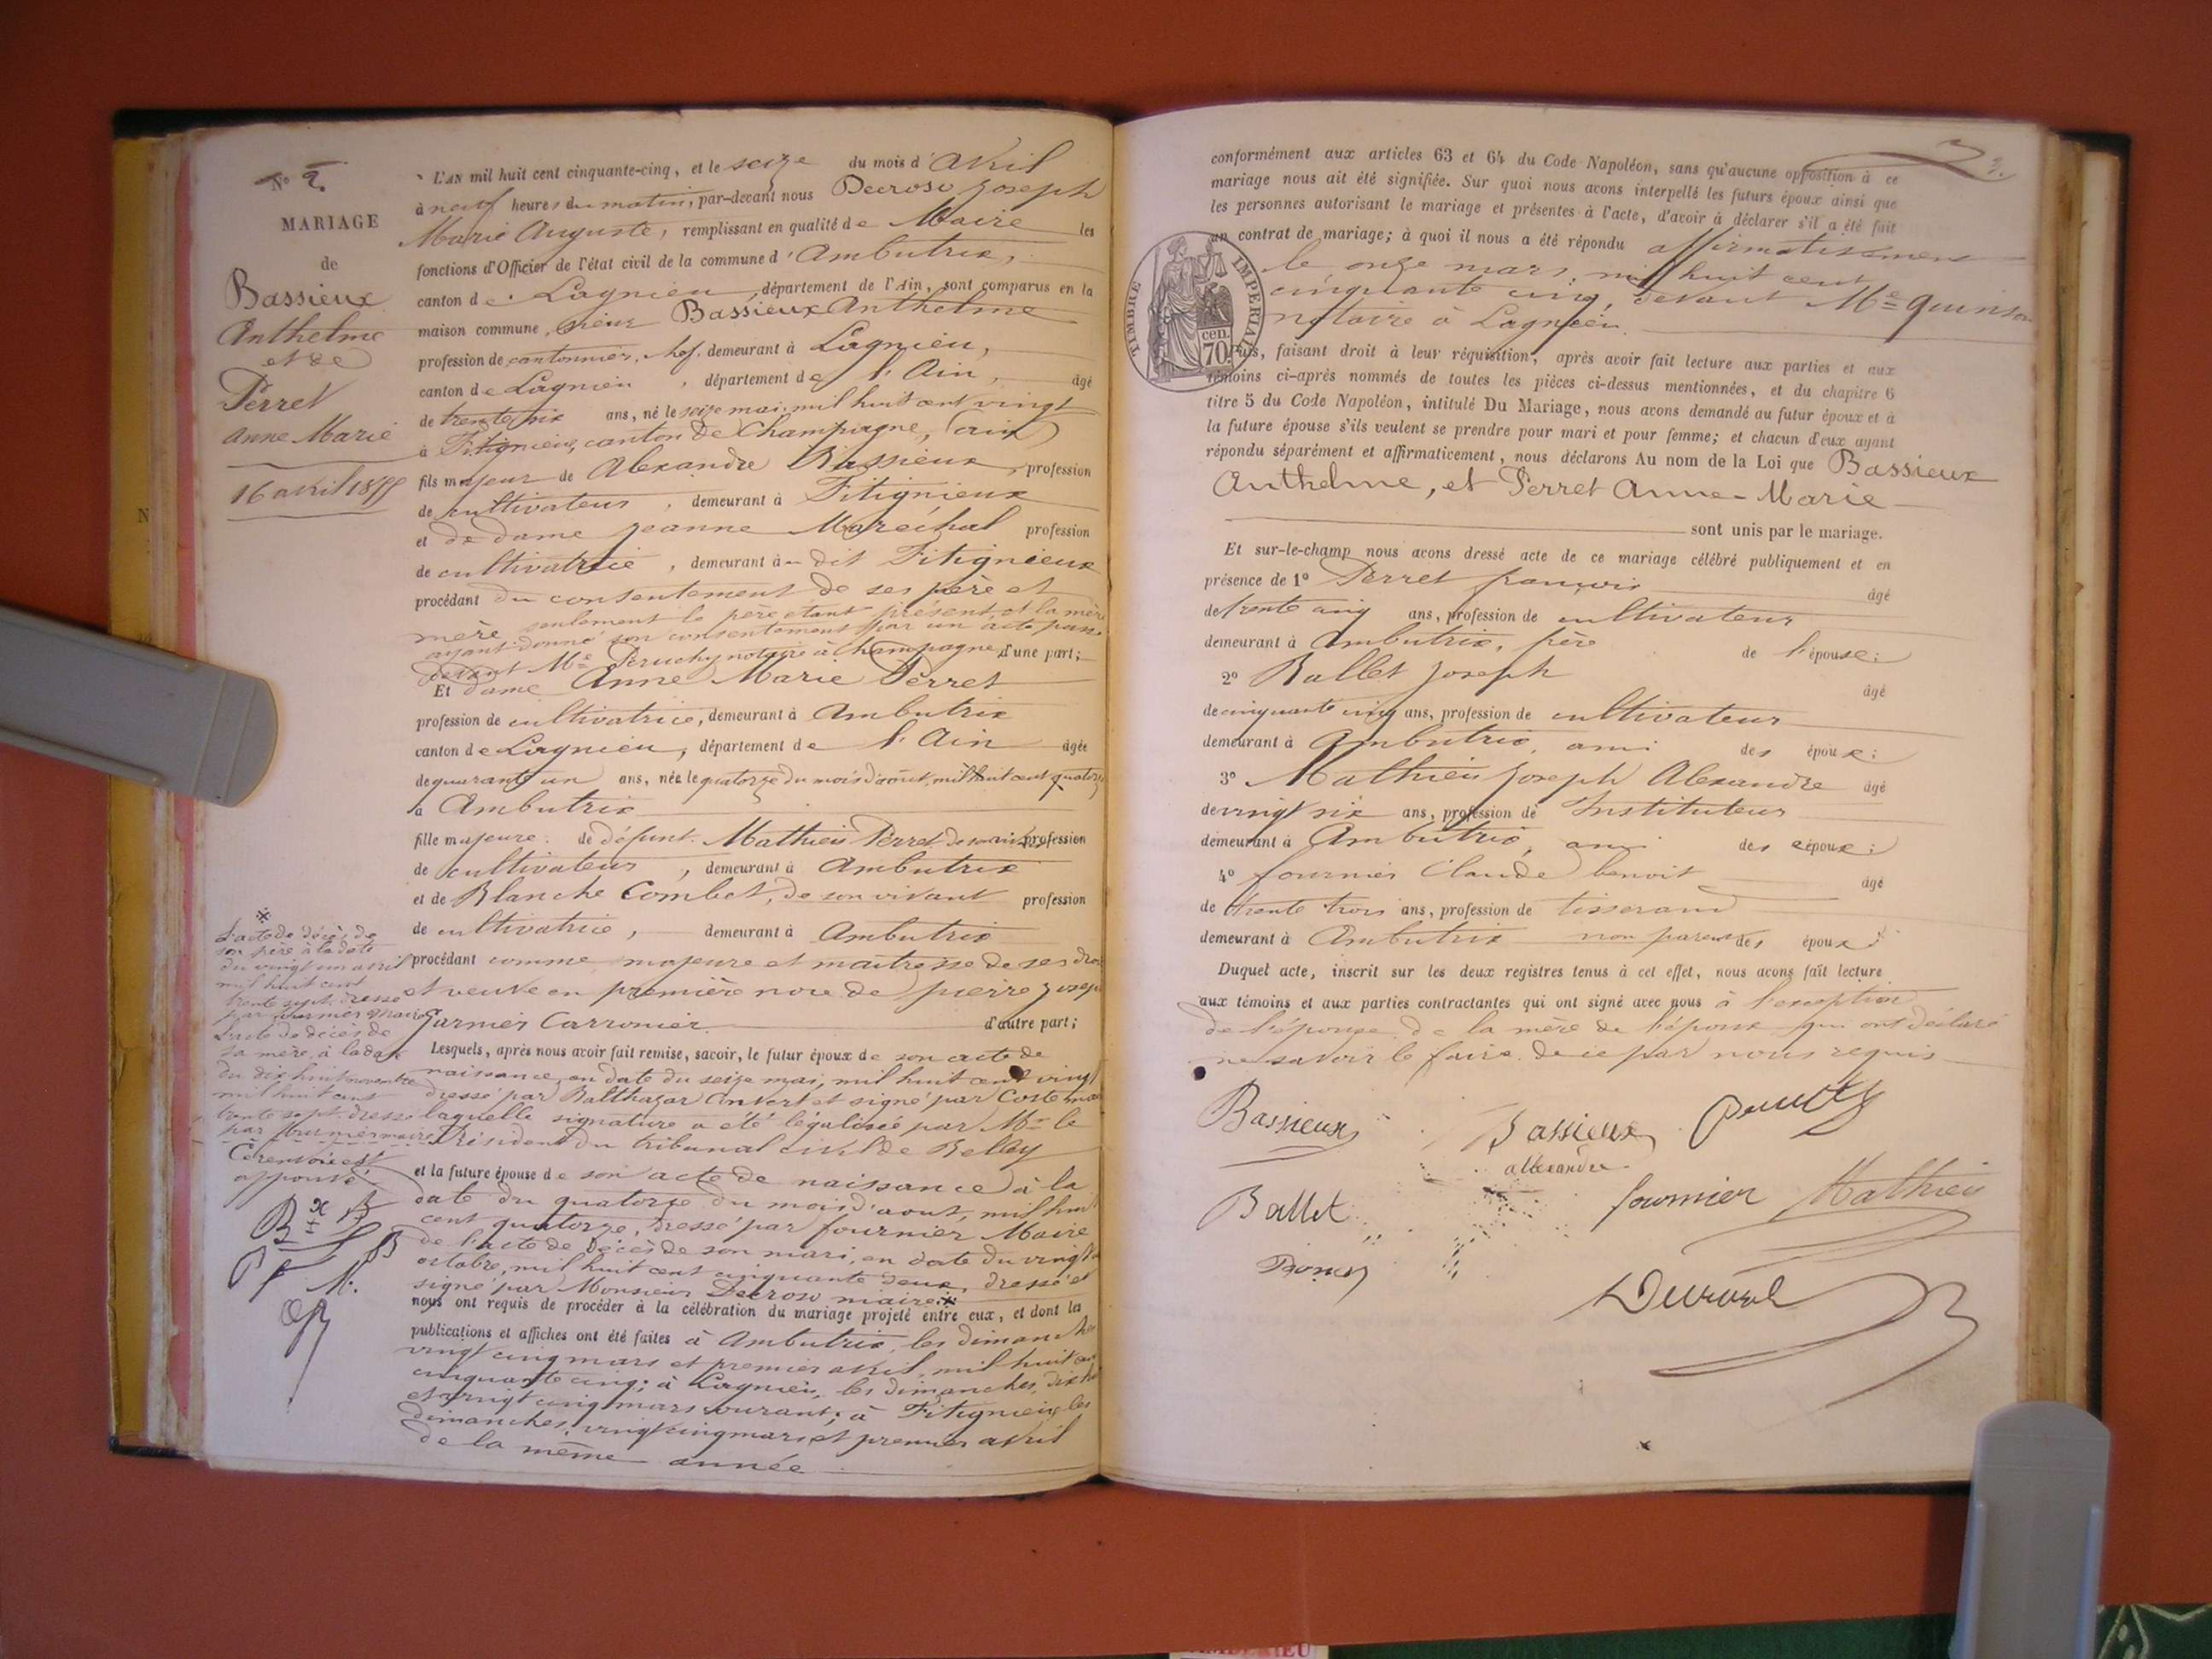 N° 2.
MARIAGE
de
Bassieux
Anthelme
et de
Perret
Anne Marie
16 avril 1855
L'AN mil huit cent cinquante-cinq, et le seize du mois d'avril
à neuf heures du matin, par-devant nous Decroso Joseph
Marie Auguste, remplissant en qualité de Maire les
fonctions d'Officier de l'état civil de la commune d'Ambutrix,
canton de Lagnieu, département de l'Ain, sont comparus en la
maison commune, sieur Bassieux Anthelme
profession de cantonnier, chef, demeurant à Lagnieu,
canton de Lagnieu, département de l'Ain, âgé
de trente six ans, né le seize mai, mil huit cent vingt
à Fitignieux, canton de Champagne, (ain)
fils majeur de Alexandre Bassieux, profession
de cultivateur, demeurant à Fitignieux
et de dame Jeanne Maréchal profession
de cultivatrice, demeurant à dit Fitignieux
procédant du consentement de ses père et
mère seulement le père etant présent, et la mère
ayant donné son consentement par un acte passé
devant Me Peruchy notaire à Champagne, d'une part;
Et dame Anne Marie Perret
profession de cultivatrice, demeurant à Ambutrix
canton de Lagnieu, département de l'Ain âgée
de quarante un ans, née le quatorze du mois d'août, mil huit cent quatorze
à Ambutrix
fille majeure de défunt Mathieu Perret, de son vivant profession
de cultivateur, demeurant à Ambutrix
et de Blanche Combet, de son vivant profession
de cultivatrice, demeurant à Ambutrix
procédant comme majeure et maitresse de ses droits
et veuve en première noce de pierre Joseph
Garnier Carronier. d'autre part;
Lesquels, après nous avoir fait remise, savoir, le futur époux de son acte de
naissance, en date du seize mai, mil huit cent vingt
dressé par Balthazar Convert et signé par Coste maire
laquelle signature a été légalisée par Mr le
Président du tribunal civil de Belley
et la future épouse de son acte de naissance à la
date du quatorze du mois d'aout, mil huit
cent quatorze, dressé par fournier Maire
de l'acte de décès de son mari, en date du vingt
octobre, mil huit cent cinquante deux, dressé et
signé par Monsieur Decroso maire *
nous ont requis de procéder à la célébration du mariage projeté entre eux, et dont les
publications et affiches ont été faites à Ambutrix, les dimanches
vingt cinq mars et premier avril, mil huit cent
cinquante cinq; à Lagnieu, les dimanches, dix huit
et vingt cinq mars courant; à Fitignieux les
dimanches, vingt cinq mars et premier avril
de la même année
*
L'acte de décès de
son père à la date
du vingt un avril
mil huit cent
trente sept, dressé
par fournier maire
L'acte de décès de
sa mère, à la date
du dix huit novembre
mil huit cent
trente sept, dressé
par fournier maire
Ce renvoi est
approuvé
conformément aux articles 63 et 64 du Code Napoléon, sans qu'aucune opposition à ce
mariage nous ait été signifiée. Sur quoi nous avons interpellé les futurs époux ainsi que
les personnes autorisant le mariage et présentes à l'acte, d'avoir à déclarer s'il a été fait
un contrat de mariage; à quoi il nous a été répondu affirmativement
le onze mars, mil huit cent
cinquante cinq, devant Me Quinson
notaire à Lagnieu.
TIMBRE IMPERIAL
70 cen.
Puis, faisant droit à leur réquisition, après avoir fait lecture aux parties et aux
témoins ci-après nommés de toutes les pièces ci-dessus mentionnées, et du chapitre 6
titre 5 du Code Napoléon, intitulé Du Mariage, nous avons demandé au futur époux et à
la future épouse s'ils veulent se prendre pour mari et pour femme; et chacun d'eux ayant
répondu séparément et affirmativement, nous déclarons Au nom de la Loi que Bassieux
Anthelme, et Perret Anne-Marie
sont unis par le mariage.
Et sur-le-champ nous avons dressé acte de ce mariage célébré publiquement et en
présence de 1° Perret françois âgé
de trente cinq ans, profession de cultivateur
demeurant à Ambutrix, père de l'épouse;
2° Ballet Joseph âgé
de cinquante cinq ans, profession de cultivateur
demeurant à Ambutrix, ami des époux;
3° Mathieu Joseph Alexandre âgé
de vingt six ans, profession de Instituteur
demeurant à Ambutrix, ami des époux;
4° fournier Claude benoit âgé
de trente trois ans, profession de tisserand
demeurant à Ambutrix non parent des époux
Duquel acte, inscrit sur les deux registres tenus à cet effet, nous avons fait lecture
aux témoins et aux parties contractantes qui ont signé avec nous à l'exception
de l'épouse de la mère de l'époux qui ont déclaré
ne savoir le faire de ce par nous requis
Bassieux Bassieux
allexandre
Ballet fournier Mathieu